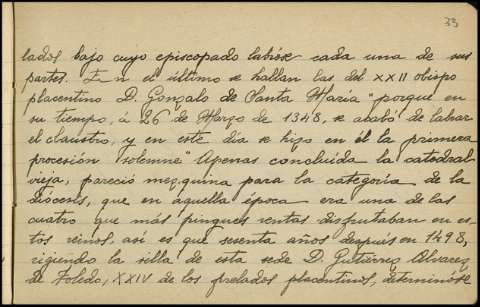 33
lados bajo cuyo episcopado labróse cada una de sus
partes. En el último se hallan las del XXII obispo
placentino D. Gonzalo de Santa María "porque en
su tiempo, á 26 de Marzo de 1348, se acabó de labrar
el claustro, y en este día se hizo en él la primera
procesión solemne" Apenas concluida la catedral
vieja, pareció mezquina para la categoría de la
diócesis, que en aquella época era una de las
cuatro que más pingues rentas disfrutaban en es-
tos reinos. así es que sesenta años después en 1498,
rigiendo la silla de esta sede D. Gutierrez Alvarez
de Toledo, XXIV de los prelados placentinos, determinóse